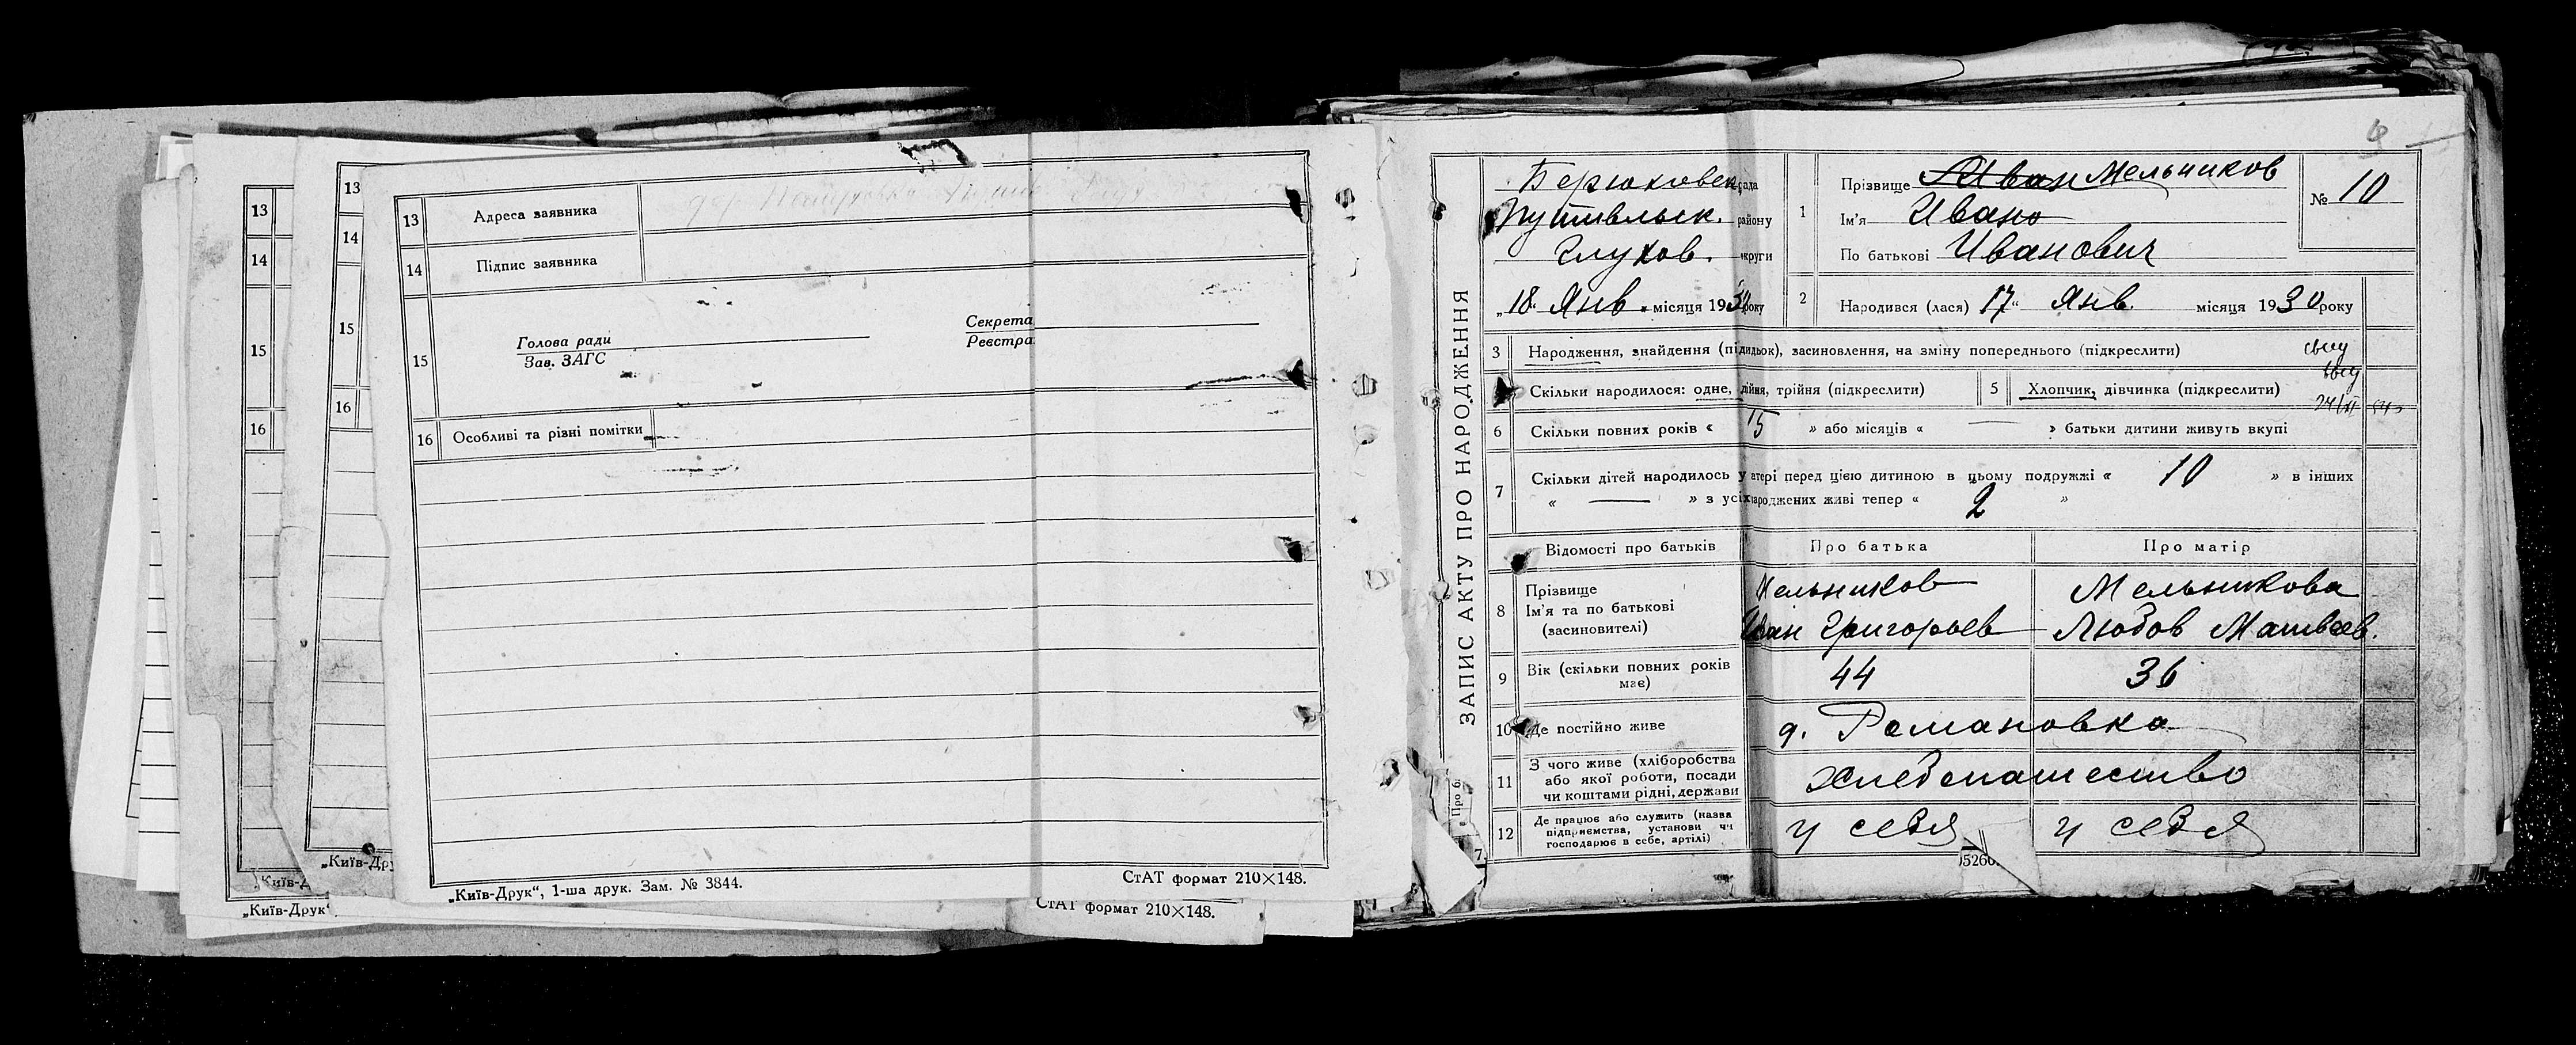 13
14
15
16
„Київ-Друк“
13
14
15
16
„Київ-Др
13 Адреса заявника
14 Підпис заявника
15 Голова ради
Зав. ЗАГС
Секрета
Реєстра
16 Особливі та різні помітки
„Київ-Друк“, 1-ша друк. Зам. № 3844.
СтАТ формат 210×148.
СтАТ формат 210×148.
ЗАПИС АКТУ ПРО НАРОДЖЕННЯ
Берюховск. рада
Путивльск. району
Глухов. округи
„18“ Янв. місяця 1930 року
1 Прізвище Иван Мельников
Ім'я Ивано
По батькові Иванович
№ 10
2 Народився (лася) 17“ Янв. місяця 1930 року
3 Народження, знайдення (підкидьок), засиновлення, на зміну попереднього (підкреслити)
Скільки народилося: одне, двійня, трійня (підкреслити)
5 Хлопчик, дівчинка (підкреслити)
6 Скільки повних років « 15 » або місяців « — » батьки дитини живуть вкупі
7 Скільки дітей народилось у матері перед цією дитиною в цьому подружжі « 10 » в інших
« — » з усіх народжених живі тепер « 2 »
Відомості про батьків
Про батька
Про матір
8 Прізвище
Ім'я та по батькові
(засиновителі)
Мельников
Иван Григорьев
Мельникова
Любов Матвеев.
9 Вік (скільки повних років
має)
44
36
10 Де постійно живе
д. Романовка
11 З чого живе (хліборобства
або якої роботи, посади
чи коштами рідні, держави
хлебопашество
12 Де працює або служить (назва
підприємства, установи чи
господарює в себе, артілі)
у себя
у себя
Про б
7
05260